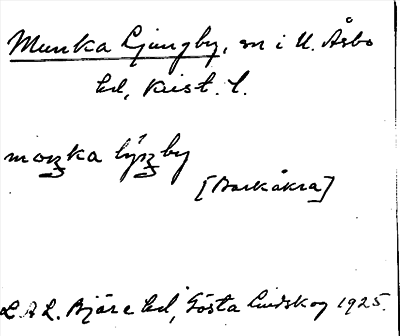 Munka Ljungby, sn i N. Åsbo
hd, Krist. l.
moŋka lýŋby
[Barkåkra]
L.A.L. Bjäre hd, Gösta Lindskog 1925.